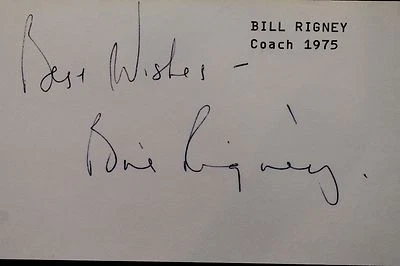 BILL RIGNEY
Coach 1975
Best Wishes -
Bill Rigney.